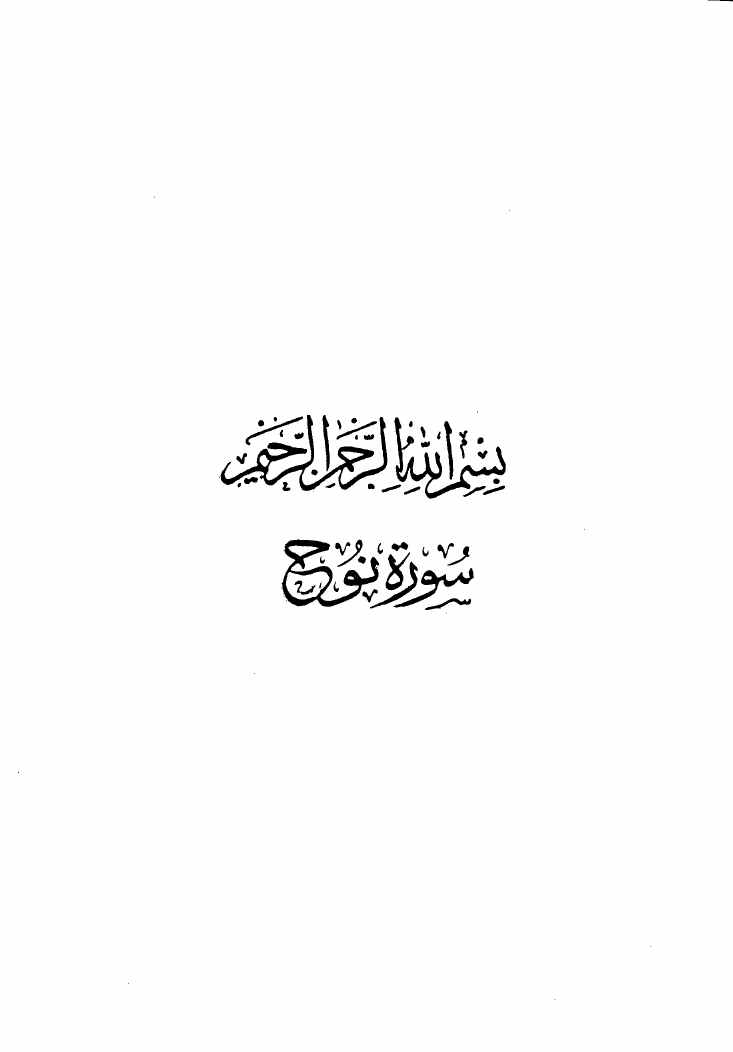 بِسْمِ اللَّهِ الرَّحْمَنِ الرَّحِيمِ
سُورَة نُوح